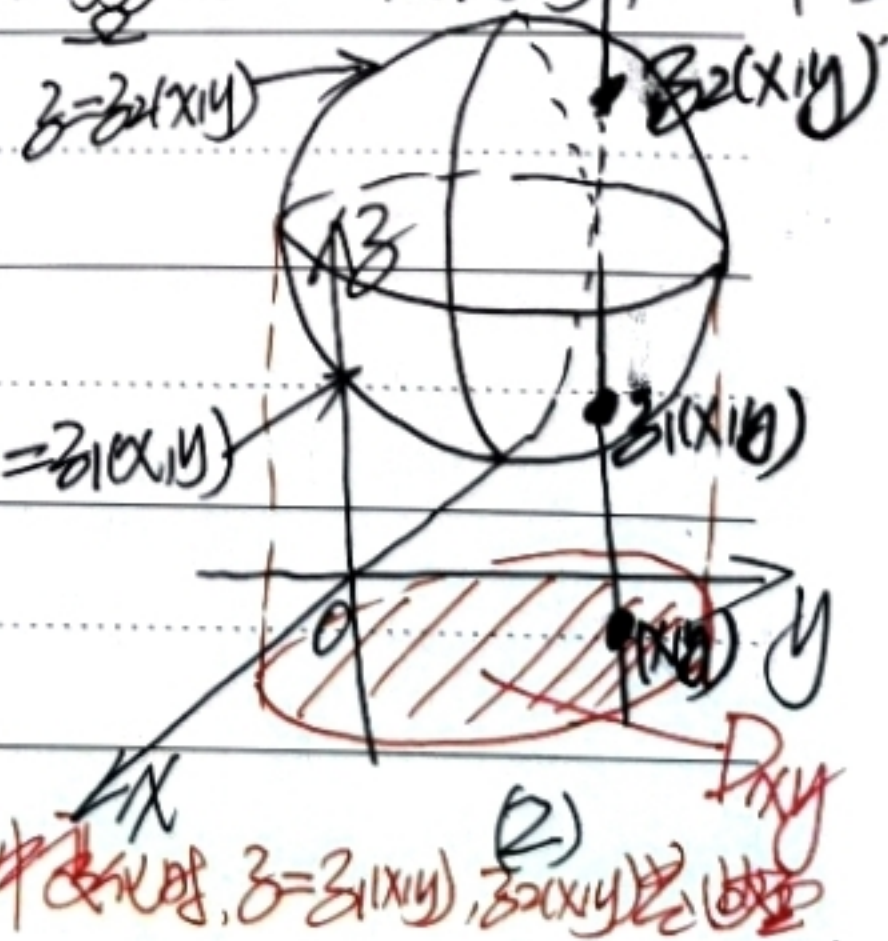 z=z2(x,y)
z2(x,y)
z
=z1(x,y)
z1(x,y)
0
(x,y)
y
Dxy
x
(2)
中 时,z=z1(x,y),z2(x,y)